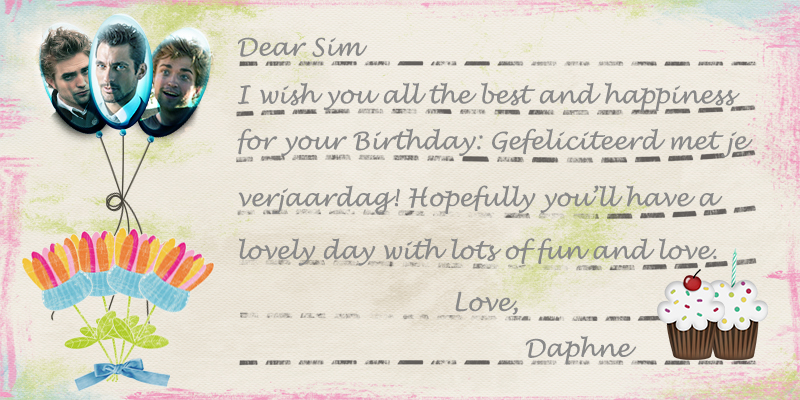 Dear Sim
I wish you all the best and happiness
for your Birthday: Gefeliciteerd met je
verjaardag! Hopefully you'll have a
lovely day with lots of fun and love.
Love,
Daphne